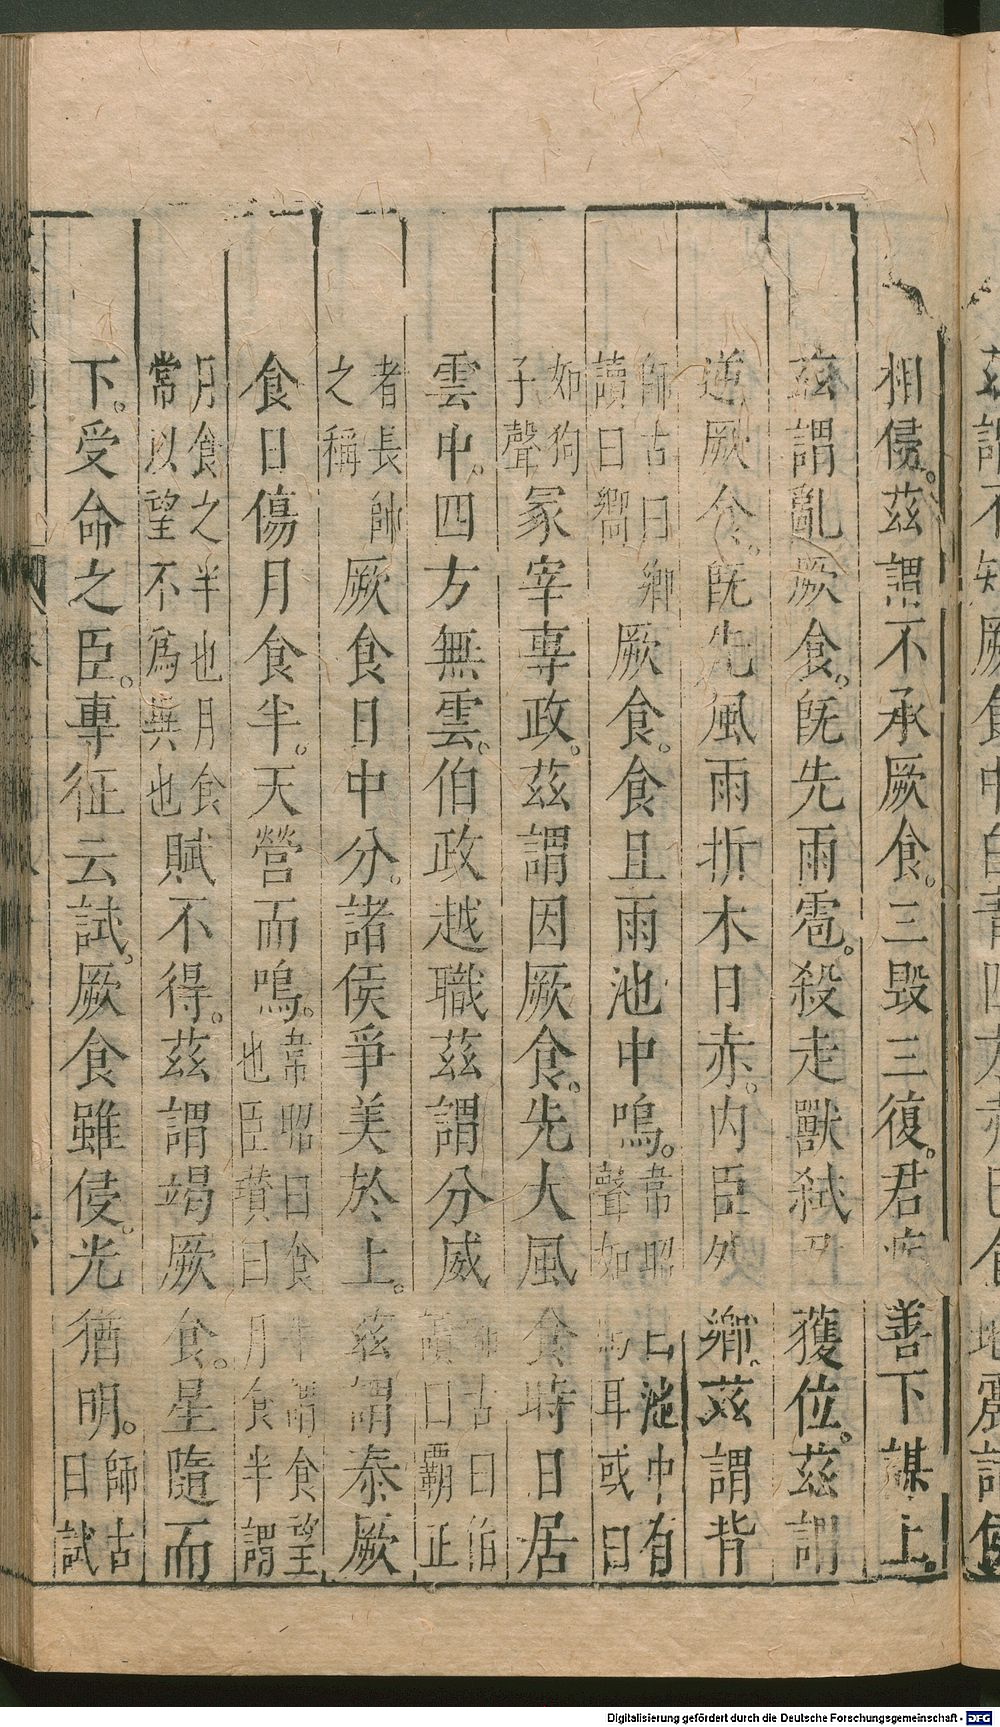 相侵。茲謂不承厥食。三毀三復。君疾善下謀上。
茲謂亂厥食。旣先雨雹。殺走獸弑君獲位。茲謂
逆厥食。旣先風雨折木日赤。内臣外鄉。茲謂背
師古曰鄉
讀曰嚮
厥食。食且雨池中鳴。
韋昭曰池中有
聲如馬耳或曰
如狗
子聲
冢宰專政。茲謂因厥食。先大風食時日居
雲中。四方無雲。伯政越職茲謂分威
師古曰伯
讀曰霸正
者長帥
之稱
厥食日中分。諸侯爭美於上。茲謂泰厥
食日傷月食半。天營而鳴。
韋昭曰食半謂食望
也臣瓚曰月食半謂
月食之半也月食
常以望不爲異也
賦不得。茲謂竭厥食。星隨而
下。受命之臣。專征云試。厥食雖侵。光猶明。
師古
曰試
Digitalisierung gefördert durch die Deutsche Forschungsgemeinschaft - DFG